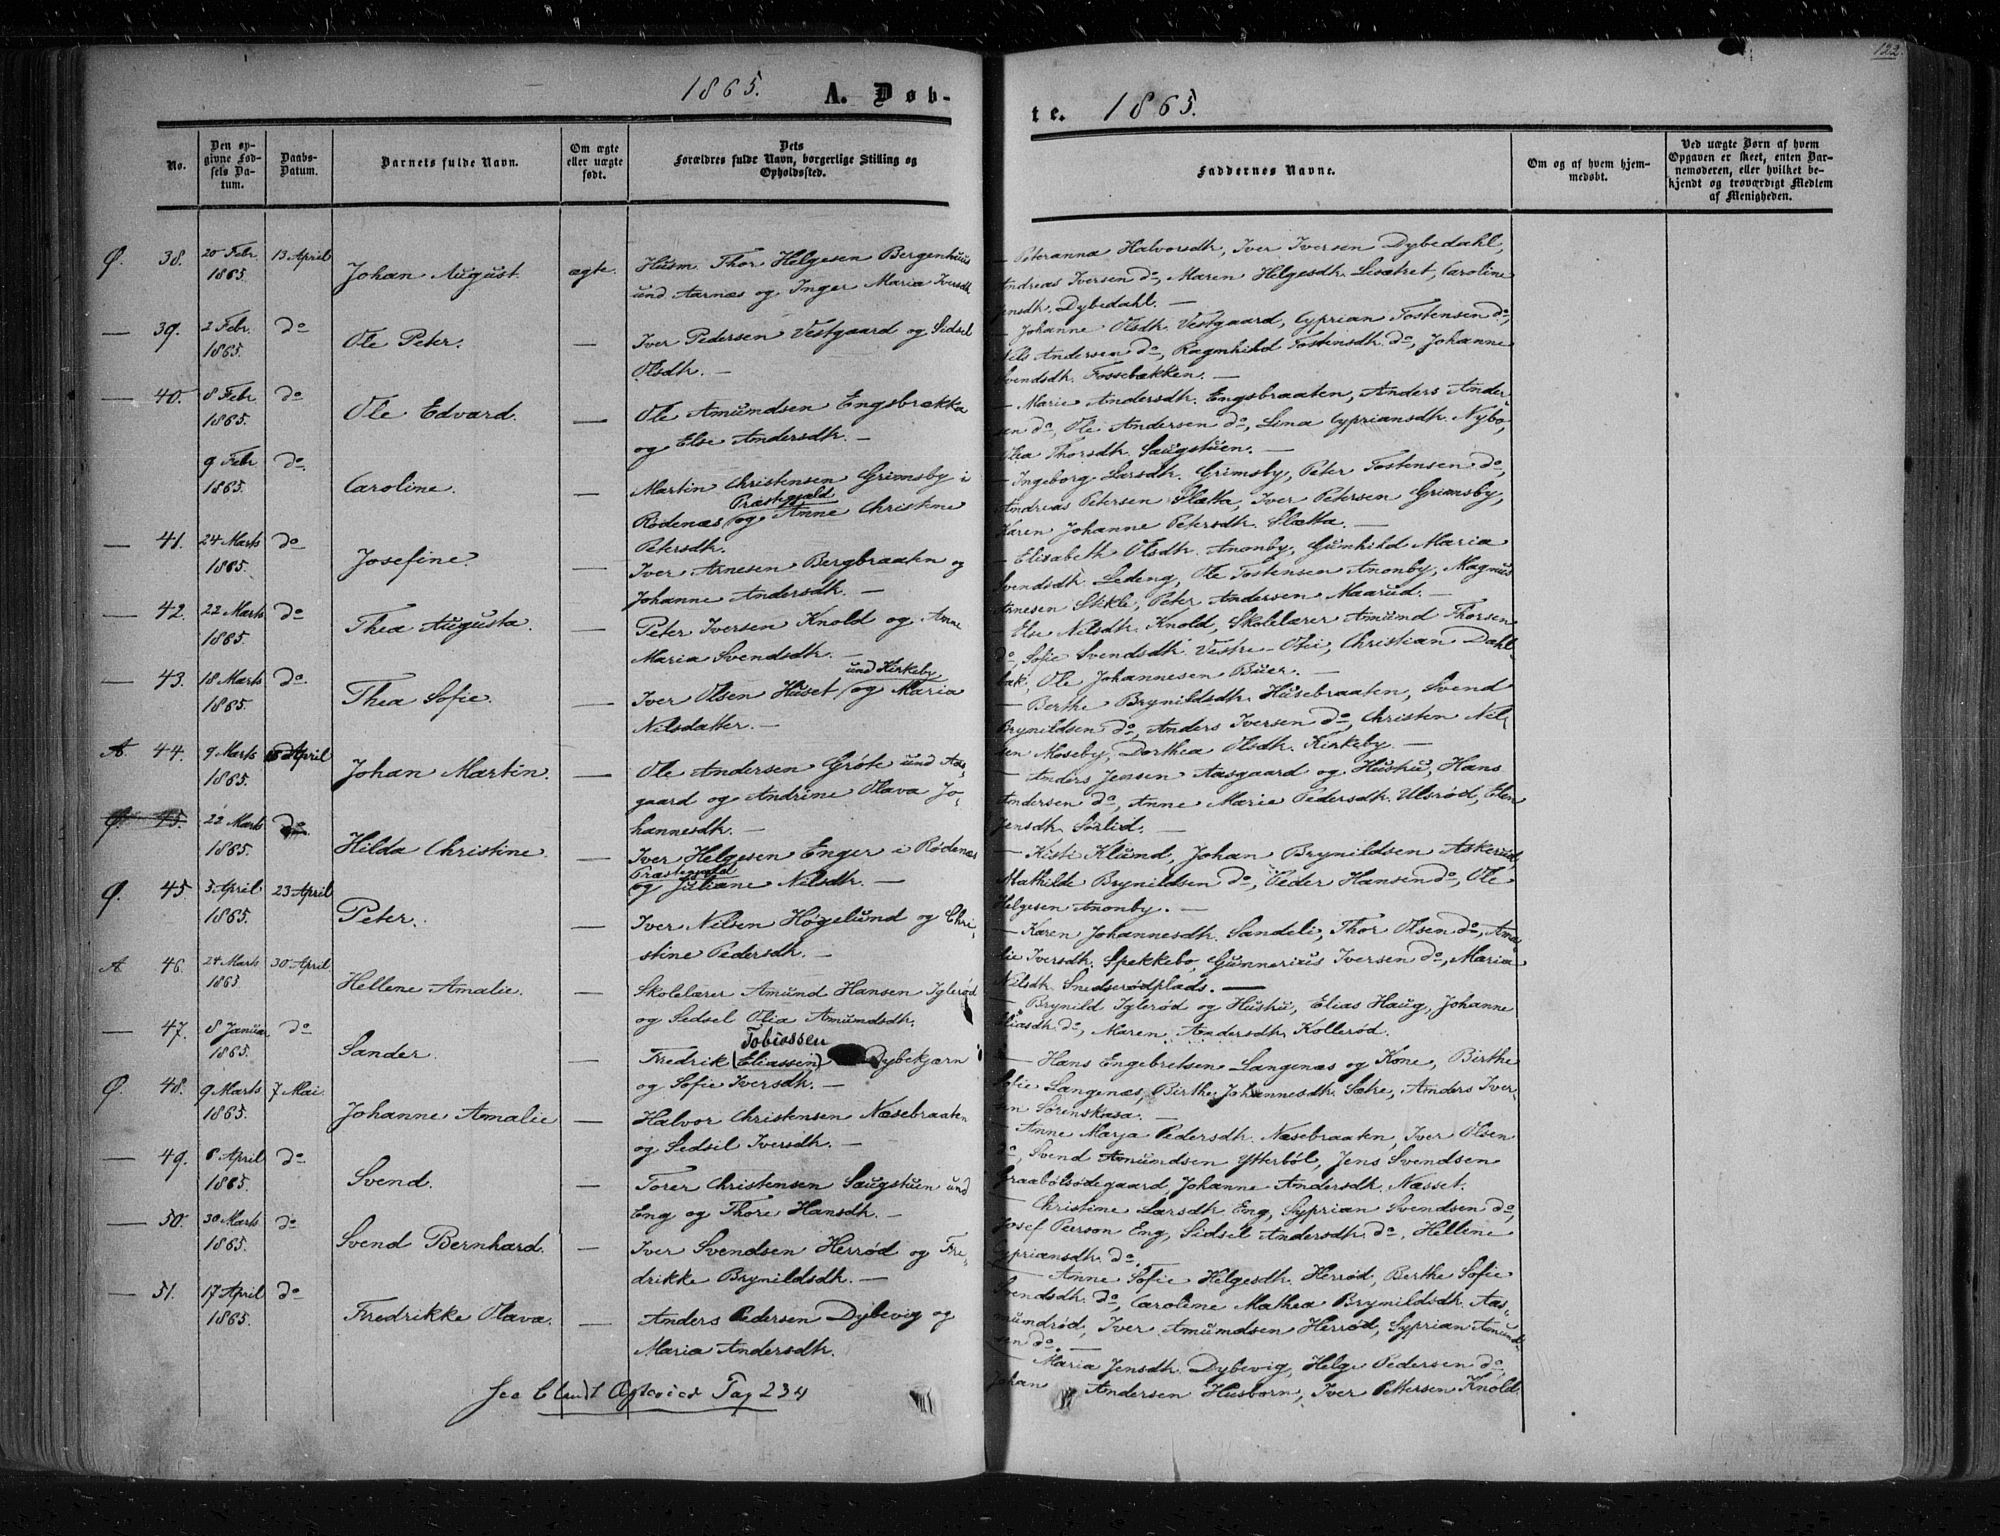 122.
1865. A. Døb-
te. 1865.
No.
Den op-
givne Fød-
sels Da-
tum.
Daabs-
Datum.
Barnets fulde Navn.
Om ægte
eller uægte
født.
Dets
Forældres fulde Navn, borgerlige Stilling og
Opholdssted.
Faddernes Navne.
Om og af hvem hjem-
medøbt.
Ved uægte Børn af hvem
Opgaven er skeet, enten Bar-
nemoderen, eller hvilket be-
kjendt og troværdigt Medlem
af Menigheden.
Ø. 38. 20 Febr. 1865. 13 April Johan August. ægte.
Husm. Thor Helgesen Bergenhuus
und Aarnæs og Inger Maria Iversdtr
— Peteranna Halvorsdtr, Iver Iversen Dybedahl,
Andreas Iversen do, Maren Helgesdtr. Lisætret, Caroline
Jensdtr. Dybedahl. —
— 39. 2 Febr. 1865. do Ole Peter. —
Iver Pedersen Vestgaard og Sidsel
Olsdtr. —
— Johanne Olsdtr. Vestgaard, Cyprian Tostensen do,
Nils Andersen do, Ragnhild Tostensdtr. do, Johanne
Svendsdtr. Fossebækken. —
— 40. 8 Febr 1865. do Ole Edvard. —
Ole Amundsen Engsbrækka
og Else Andersdtr. —
— Marie Andersdtr. Engsbraaten, Anders Ander-
sen do, Ole Andersen do, Lina Cypriansdtr. Nybo,
Olea Thorsdtr. Saugstuen. —
9 Febr 1865. do. Caroline. —
Martin Christensen Grimsby i
Rødenæs Præstegjeld og Anne Christine
Petersdtr.
— Ingeborg Larsdtr. Grimsby, Peter Tostensen do,
Andreas Petersen Slætta, Iver Petersen Grimsby,
Karen Johanne Petersdtr. Slætta. —
— 41. 24 Marts 1865. do Josefine. —
Iver Arnesen Bergbraaten og
Johanne Andersdtr. —
— Elisabeth Olsdtr. Anonby, Gunhild Maria
Svendsdtr. Ledeng, Ole Tostensen Anonby, Magnus
Arnesen Sikle, Peter Andersen Maarud. —
— 42. 22 Marts 1865. do Thea Augusta. —
Peter Iversen Knold og Anne
Maria Svendsdtr. —
— Else Nilsdtr. Knold, Skolelærer Amund Thorsen
do, Sofie Svendsdtr. Vestre-Otei, Christian Dahl-
bak, Ole Johannesen Buer. —
— 43. 18 Marts 1865. do Thea Sofie. —
Iver Olsen Huset und Kirkeby og Maria
Nilsdatter. —
— Berthe Brynildsdtr. Husebraaten, Svend
Brynildsen do, Anders Iversen do, Christen Nil-
sen Moseby, Dorthea Olsdtr. Kirkeby. —
A 44. 9 Marts 1865. April Johan Martin. —
Ole Andersen Grôte und Aas-
gaard og Andrine Olava Jo-
hannesdtr. —
— Anders Jensen Aasgaard og Hustru, Hans
Andersen do, Anne Marie Pedersdtr. Ulsrød, Elen
Jensdtr. Sørlid. —
Ø. 45. 22 Marts 1865. do Hilda Christine. —
Iver Helgesen Enger i Rødenæs
Præstegjeld
og Juliane Nilsdtr. —
— Kisti Klund, Johan Brynildsen Askerud,
Mathilde Brynildsen do, Peder Hansen do, Ole
Helgesen Anonby. —
Ø. 45. 5 April 1865. 23 April Peter. —
Iver Nilsen Høgelund og Chri-
stine Pedersdtr. —
— Karen Johannesdtr. Sandeli, Thor Olsen do, Ama-
lie Iversdtr. Spekkebo, Gunnerius Iversen do, Maria
Nilsdtr. Snedserødplads. —
A 46. 24 Marts 1865 30 April Hellene Amalie. —
Skolelærer Amund Hansen Iglerød
og Sidsel Olia Amundsdtr.
— Brynild Iglerød og Hustru, Elias Haug, Johanne
Eliasdtr. do, Maren Andersdtr. Kollerød.
— 47. 8 Januar 1865. do. Sander. —
Tobiassen
Fredrik (Eliassen) Dybekjærn
og Sofie Iversdtr. —
— Hans Engebretsen Langenæs og Kone, Birthe
Sofie Langenæs, Birthe Johannesdtr. Sætre, Anders Iver-
sen Sørenskasa. —
Ø. 48. 9 Marts 1865. 7 Mai. Johanne Amalie —
Halvor Christensen Næsebraaten
og Sidsel Iversdtr. —
— Anne Marja Pedersdtr. Næsebraaten, Iver Olsen
do, Svend Amundsen Ytterböl, Jens Svendsen
Graabölsødegaard, Johanne Andersdtr. Næsset.
— 49. 6 April 1865. do Svend. —
Torer Christensen Saugstuen und
Eng og Thore Hansdtr. —
— Christine Larsdtr. Eng, Syprian Svendsen do,
Josef Person Eng, Sidsel Andersdtr. do, Helline
Cypriansdtr. do.
— 50. 30 Marts 1865. do Svend Bernhard. —
Iver Svendsen Herrød og Fre-
drikke Brynildsdtr. —
— Anne Sofie Helgesdtr. Herrød, Berthe Sofie
Svendsdtr. do, Caroline Mathea Brynildsdtr. Aas-
mundrød, Iver Amundsen Herrød, Syprian Amund-
sen do.
— 51. 17 April 1865. do Fredrikke Olava. —
Anders Pedersen Dybevig og
Maria Andersdtr.
— Maria Jensdtr. Dybevig, Helge Pedersen do,
Johan Andersen Husborn, Iver Pettersen Knold.
234